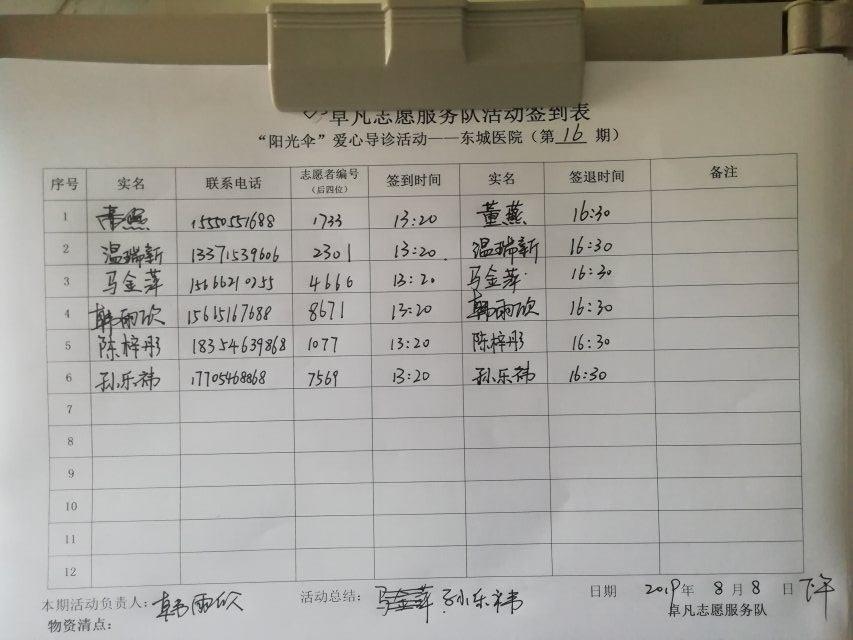 卓凡志愿服务队活动签到表
“阳光伞”爱心导诊活动——东城医院（第 16 期）
序号 实名 联系电话 志愿者编号（后四位） 签到时间 实名 签退时间 备注
1 董燕 15550551688 1733 13:20 董燕 16:30
2 温瑞新 13371539606 2301 13:20 温瑞新 16:30
3 马金萍 15666210255 4666 13:20 马金萍 16:30
4 韩雨欣 15615167688 8671 13:20 韩雨欣 16:30
5 陈梓彤 18354639868 1077 13:20 陈梓彤 16:30
6 孙乐祎 17705468868 7569 13:20 孙乐祎 16:30
7
8
9
10
11
12
本期活动负责人：韩雨欣 活动总结：马金萍 孙乐祎 日期 2019年 8月8日 下午
物资清点： 卓凡志愿服务队